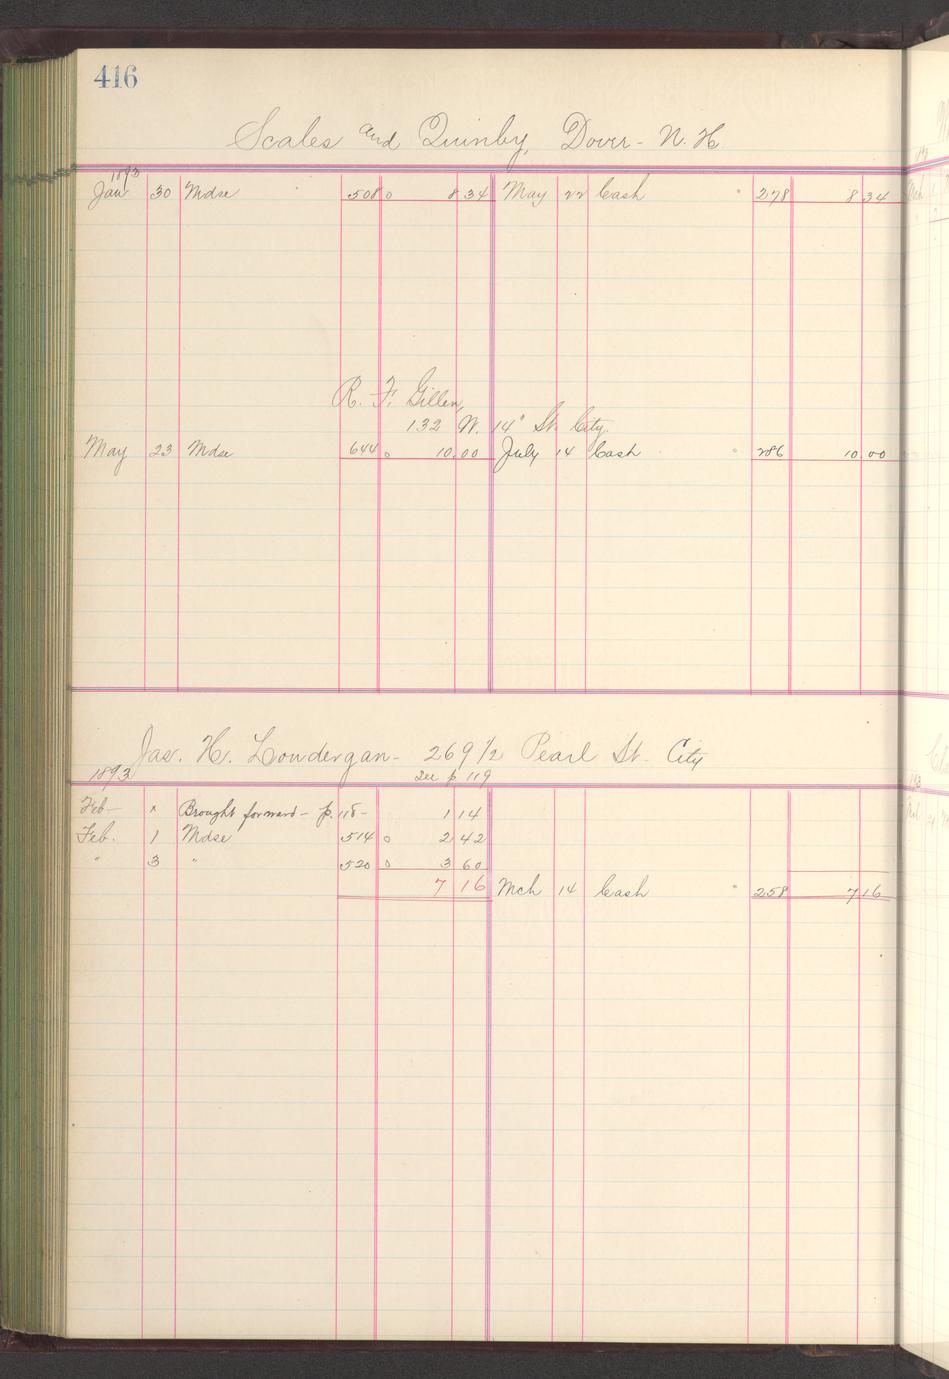 416
Scales and Quinby, Dover - N. H
1893
Jan 30 Mdse 508 0 8 34 May 22 Cash 278 8 34
R. F. Gillen,
132 W. 14" St. City.
May 23 Mdse 644 0 10.00 July 14 Cash 286 10 00
Jas. H. Londergan - 269 1/2 Pearl St. City
1893 See p. 119
Feb - x Brought forward - p. 118 - 1 14
Feb. 1 Mdse 514 0 2 42
" 3 " 520 0 3 60
7 16 Mch 14 Cash 258 7 16